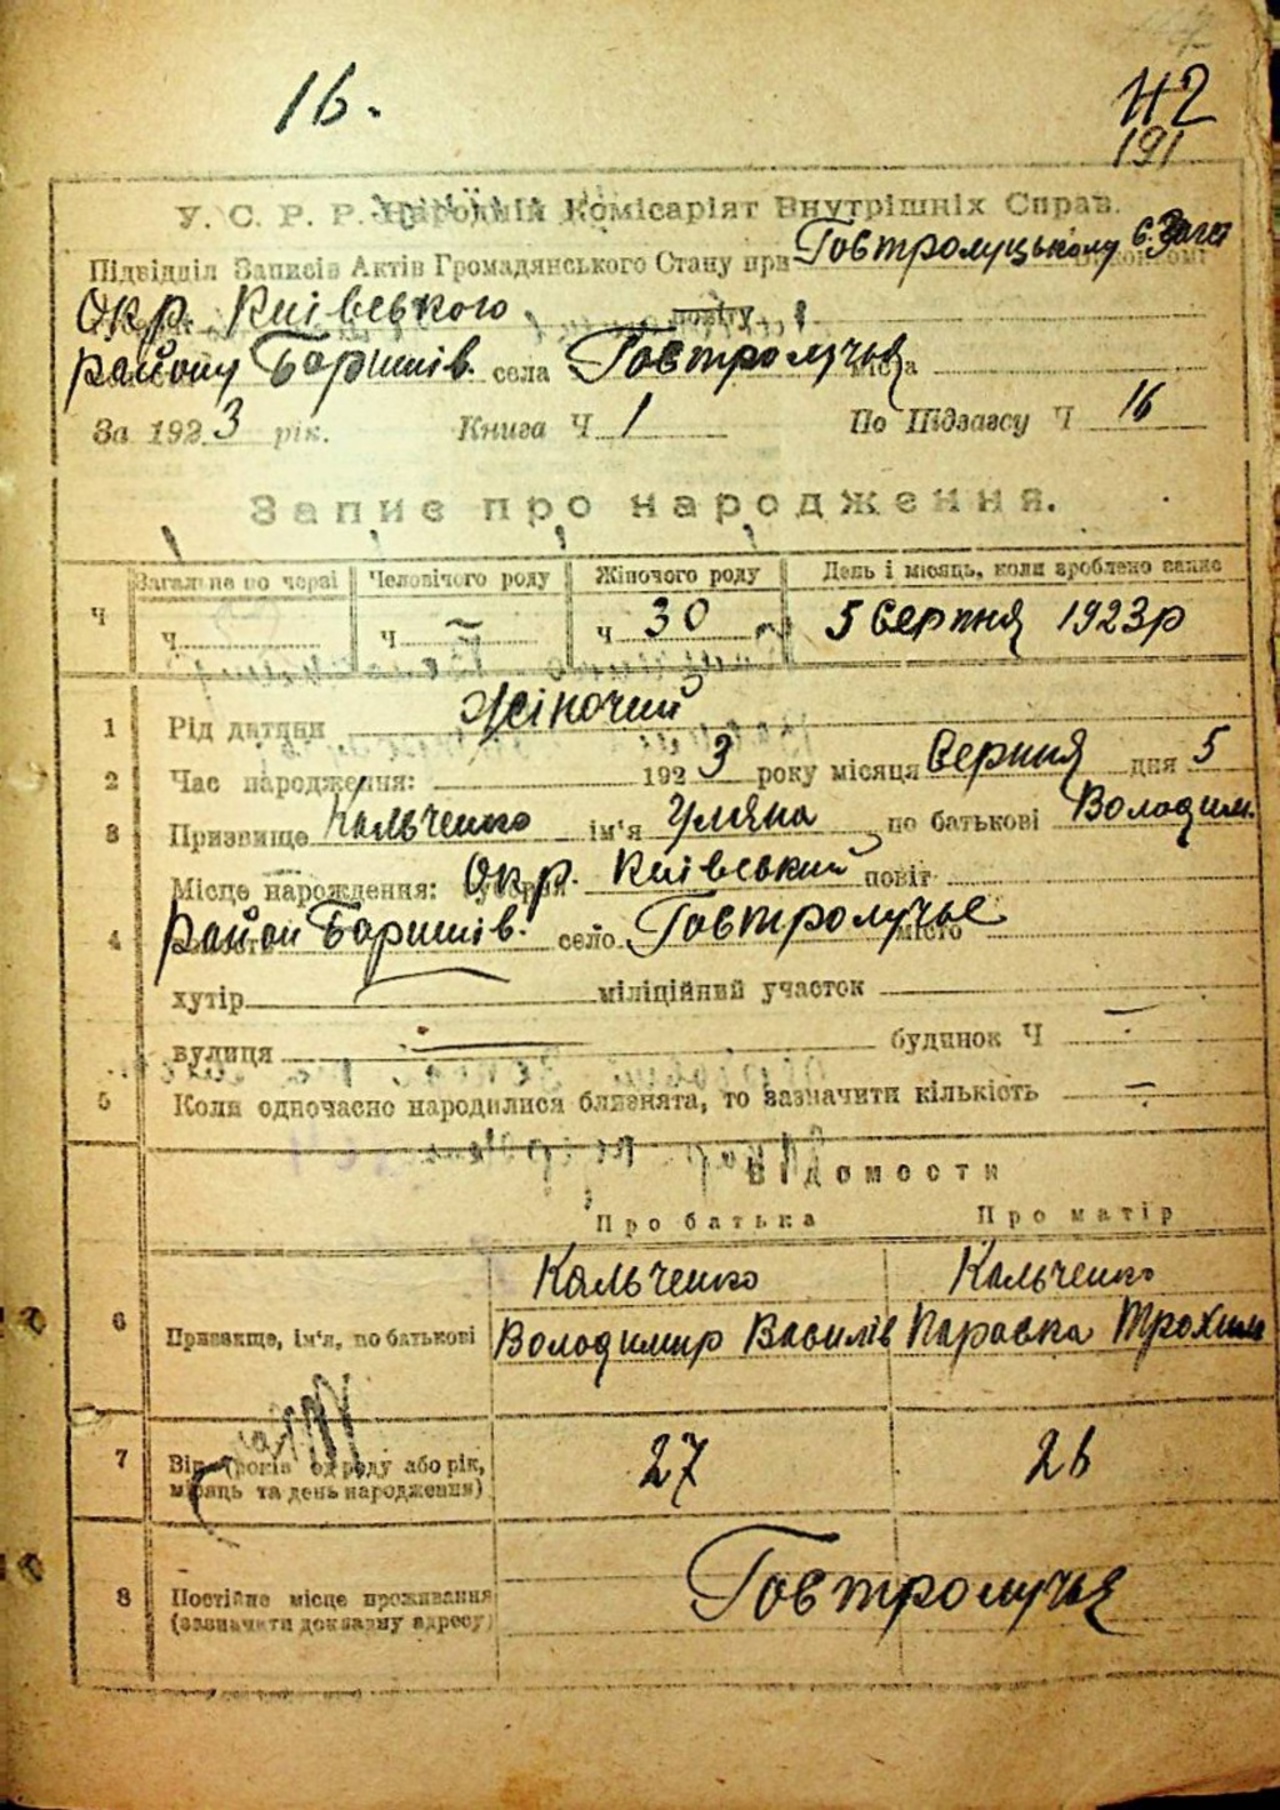 16.
Н2
191
У. С. Р. Р. Народній Комісаріят Внутрішніх Справ.
Підвідділ Записів Актів Громадянського Стану при Говтролуцькому с.
Окр. Київського повіту
району Баришів. села Говтролучья міста
За 1923 рік. Книга Ч 1 По Підзагсу Ч 16
Запис про народження.
Загальне по черзі Человічого роду Жіночого роду День і місяць, коли зроблено запис
Ч Ч Ч — Ч 30 5 Серпня 1923р
1 Рід дитяни Жіночий
2 Час народження: 1923 року місяця Серпня дня 5
3 Призвище Кальченко ім'я Уляна по батькові Володим.
Місце нарождення: Окр. Київський повіт
4 район Баришів. село Говтролучье місто
хутір міліційний участок
вулиця — будинок Ч —
5 Коли одночасно народилися близнята, то зазначити кількість —
Відомости
Про батька Про матір
Кальченко Кальченко
6 Призвище, ім'я, по батькові Володимир Василів Параска Трохим
7 Вік (років од роду або рік, 27 26
місяць та день народження)
8 Постійне місце проживання Говтролучья
(зазначити докладну адресу)